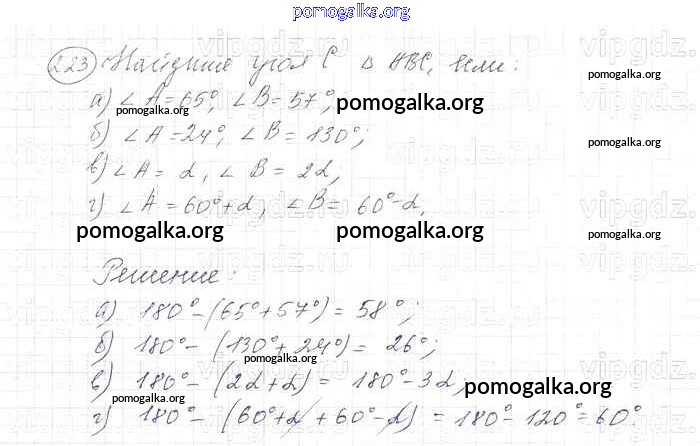 pomogalka.org
223 Найдите угол C Δ ABC, если:
а) ∠A=65°, ∠B=57°;
pomogalka.org
б) ∠A=24°, ∠B=130°;
pomogalka.org
в) ∠A = α, ∠B = 2α,
г) ∠A = 60°+α, ∠B = 60°-α.
pomogalka.org pomogalka.org pomogalka.org
Решение:
а) 180° - (65°+57°) = 58°;
б) 180° - (130°+24°) = 26°;
pomogalka.org
в) 180° - (2α+α) = 180° - 3α,
pomogalka.org pomogalka.org
г) 180° - (60°+α+60°-α) = 180° - 120° = 60°.
vipgdz.ru